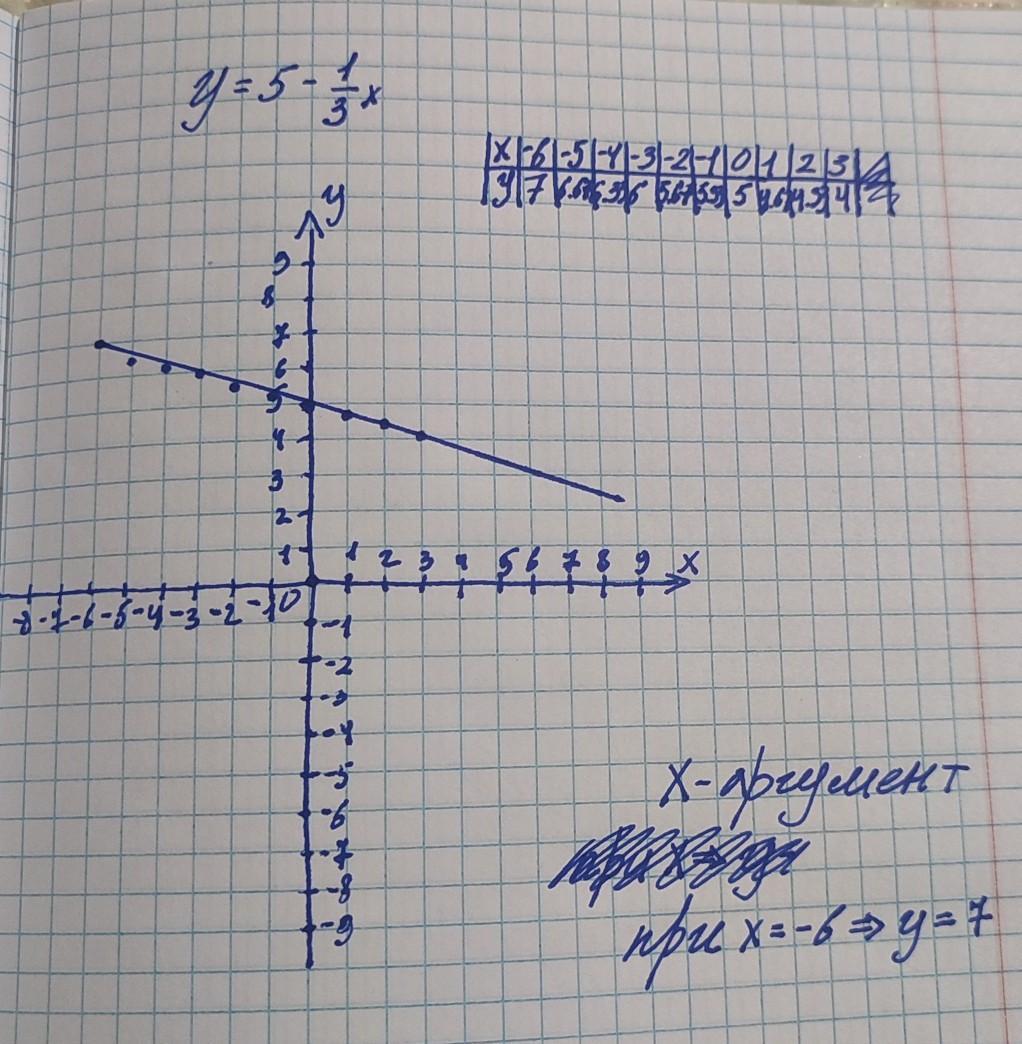 y = 5 - 1/3 x
x | -6 | -5 | -4 | -3 | -2 | -1 | 0 | 1 | 2 | 3
y | 7 | 6.67 | 6.3 | 6 | 5.67 | 5.3 | 5 | 4.6 | 4.3 | 4
y
9
8
7
6
5
4
3
2
1
1 2 3 4 5 6 7 8 9 x
-8 -7 -6 -5 -4 -3 -2 -1 0
-1
-2
-3
-4
-5
-6
-7
-8
-9
x - аргумент
при x = -6 ⇒ y = 7